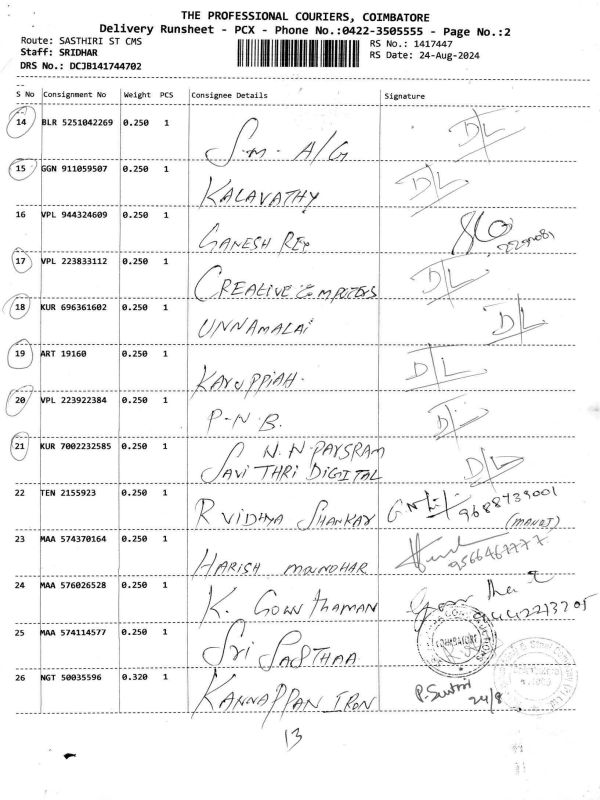 THE PROFESSIONAL COURIERS, COIMBATORE
Delivery Runsheet - PCX - Phone No.:0422-3505555 - Page No.:2
Route: SASTHIRI ST CMS
RS No.: 1417447
Staff: SRIDHAR
RS Date: 24-Aug-2024
DRS No.: DCJB141744702
S No Consignment No Weight PCS Consignee Details Signature
14 BLR 5251042269 0.250 1 S.M. A/G D/L
15 GGN 911059507 0.250 1 KALAVATHY D/L
16 VPL 944324609 0.250 1 GANESH REP
17 VPL 223833112 0.250 1 CREATIVE COMPUTERS D/L
18 KUR 696361602 0.250 1 UNNAMALAI D/L
19 ART 19160 0.250 1 KARUPPIAH. D/L
20 VPL 223922384 0.250 1 P-N.B. D/L
21 KUR 7002232585 0.250 1 N.N-PAYSRAM
SAVITHRI DIGITAL D/L
22 TEN 2155923 0.250 1 R VIDHYA SHANKAR 9688739001
(MANOJ)
23 MAA 574370164 0.250 1 HARISH MANOHAR 9566467777
24 MAA 576026528 0.250 1 K. GOWTHAMAN
25 MAA 574114577 0.250 1 SRI SASTHAA COIMBATORE
26 NGT 50035596 0.320 1 KANNAPPAN IRON 24/8
13